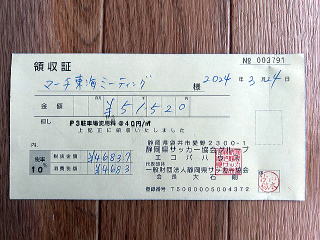 領収証
№ 003791
マーチ東海ミーティング 様 2024年3月24日
金額 ¥51520
但し P3駐車場使用料@40円/㎡
上記正に領収いたしました
静岡県袋井市愛野2300-1
静岡県サッカー協会グループ
エコパハウス
税率 10% 税抜金額 ¥46837
消費税額 ¥4683
代表団体
一般財団法人静岡県サッカー協会
会長 大石 剛
登録番号 T5080005004372